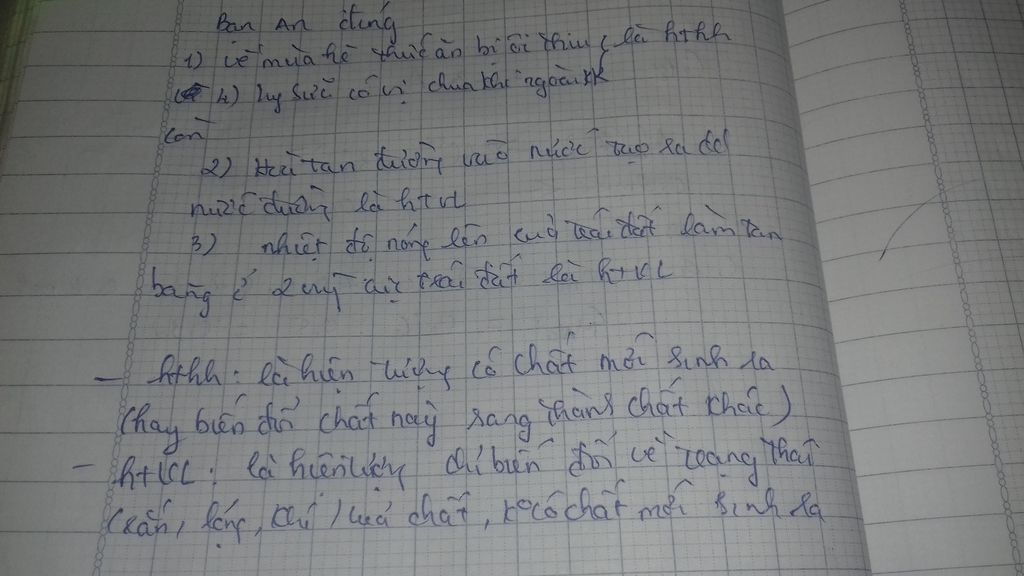 Bạn An đúng
1) về mùa hè thức ăn bị ôi thiu là hthh
4) ly sữa có vị chua khi ngoài kk
còn
2) Hoà tan đường vào nước tạo ra dd
nước đường là htvl
3) nhiệt độ nóng lên của trái đất làm tan
băng ở 2 cực trái đất là htVL
- hthh: là hiện tượng có chất mới sinh ra
(hay biến đổi chất này sang thành chất khác)
- htVL: là hiện tượng chỉ biến đổi về trạng thái
(rắn, lỏng, khí) của chất, ko có chất mới sinh ra